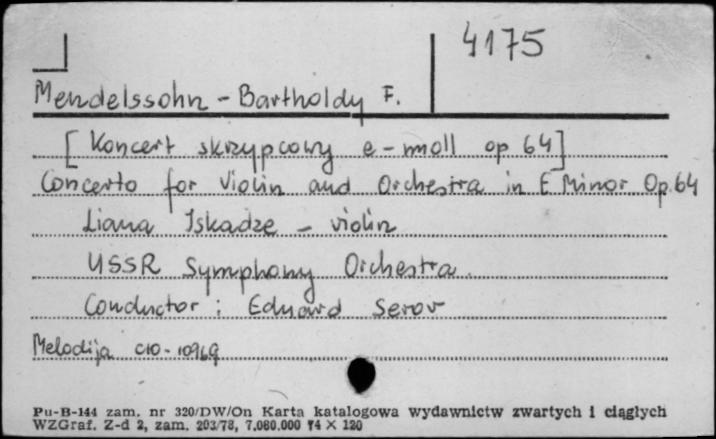 4175
Mendelssohn - Bartholdy F.
[Koncert skrzypcowy e-moll op 64]
Concerto for Violin and Orchestra in E Minor Op.64
Liana Iskadze - violin
USSR Symphony Orchestra.
Conductor: Eduard Serov
Melodija C10-10969
Pu-B-144 zam. nr 320/DW/On Karta katalogowa wydawnictw zwartych i ciągłych
WZGraf. Z-d 2, zam. 203/78, 7.080.000 74 X 120